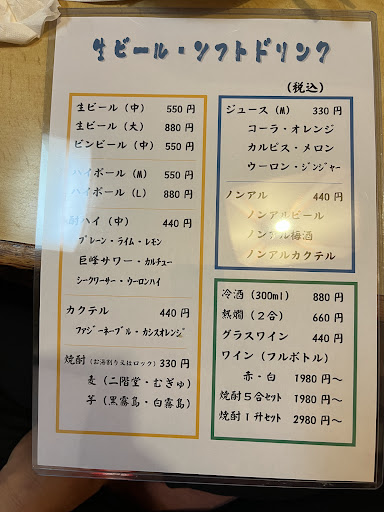 生ビール・ソフトドリンク
(税込)
生ビール (中) 550 円
生ビール (大) 880 円
ビンビール (中) 550 円
ハイボール (M) 550 円
ハイボール (L) 880 円
酎ハイ (中) 440 円
プレーン・ライム・レモン
巨峰サワー・カルチュー
シークワーサー・ウーロンハイ
カクテル 440 円
ファジーネーブル・カシスオレンジ
焼酎 (お湯割り又はロック) 330 円
麦 (二階堂・むぎゅ)
芋 (黒霧島・白霧島)
ジュース (M) 330 円
コーラ・オレンジ
カルピス・メロン
ウーロン・ジンジャー
ノンアル 440 円
ノンアルビール
ノンアル梅酒
ノンアルカクテル
冷酒 (300ml) 880 円
熱燗 (2合) 660 円
グラスワイン 440 円
ワイン (フルボトル)
赤・白 1980 円~
焼酎5合セット 1980 円~
焼酎1升セット 2980 円~